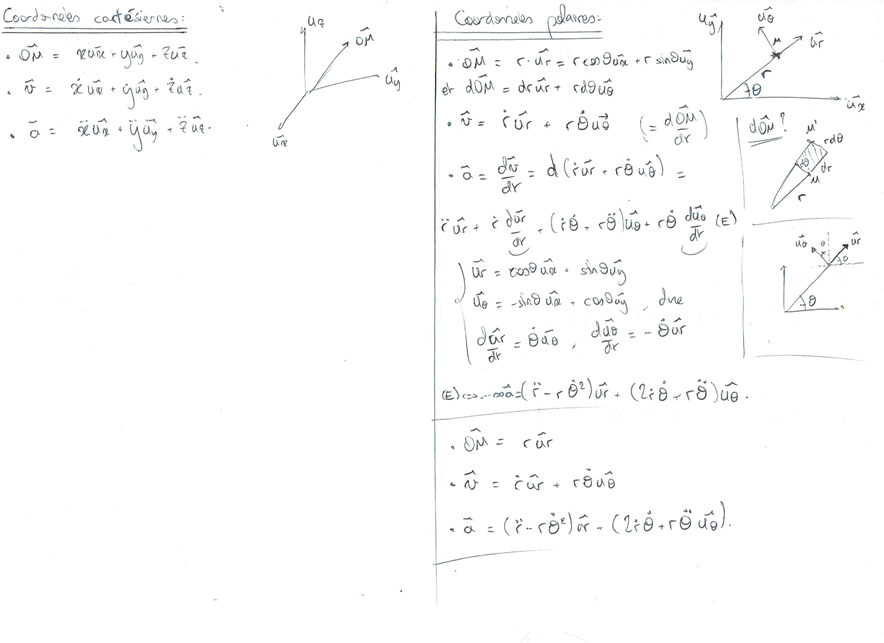 Coordonnées cartésiennes:
• OM⃗ = xux⃗ + yuy⃗ + zuz⃗.
• v⃗ = ẋux⃗ + ẏuy⃗ + żuz⃗.
• a⃗ = ẍux⃗ + ÿuy⃗ + z̈uz⃗.
uz⃗
OM⃗
uy⃗
ux⃗
Coordonnées polaires:
• OM⃗ = r·ur⃗ = r cosθux⃗ + r sinθuy⃗
et dOM⃗ = drur⃗ + rdθuθ⃗
• v⃗ = ṙur⃗ + rθ̇uθ⃗ (= dOM⃗/dr)
• a⃗ = dv⃗/dr = d(ṙur⃗ + rθ̇uθ⃗) =
r̈ur⃗ + ṙ dur⃗/dr + (ṙθ̇ + rθ̈)uθ⃗ + rθ̇ duθ⃗/dr (E)
ur⃗ = cosθux⃗ + sinθuy⃗
uθ⃗ = -sinθux⃗ + cosθuy⃗, dnc
dur⃗/dr = θ̇uθ⃗, duθ⃗/dr = -θ̇ur⃗
(E) <=> ... <=> a⃗ = (r̈ - rθ̇²)ur⃗ + (2ṙθ̇ + rθ̈)uθ⃗.
• OM⃗ = rur⃗
• v⃗ = ṙur⃗ + rθ̇uθ⃗
• a⃗ = (r̈ - rθ̇²)ur⃗ - (2ṙθ̇ + rθ̈uθ⃗).
uy⃗
uθ⃗
M
ur⃗
r
θ
ux⃗
dOM⃗?
M'
rdθ
dθ
dr
M
r
uθ⃗
θ
ur⃗
θ
θ